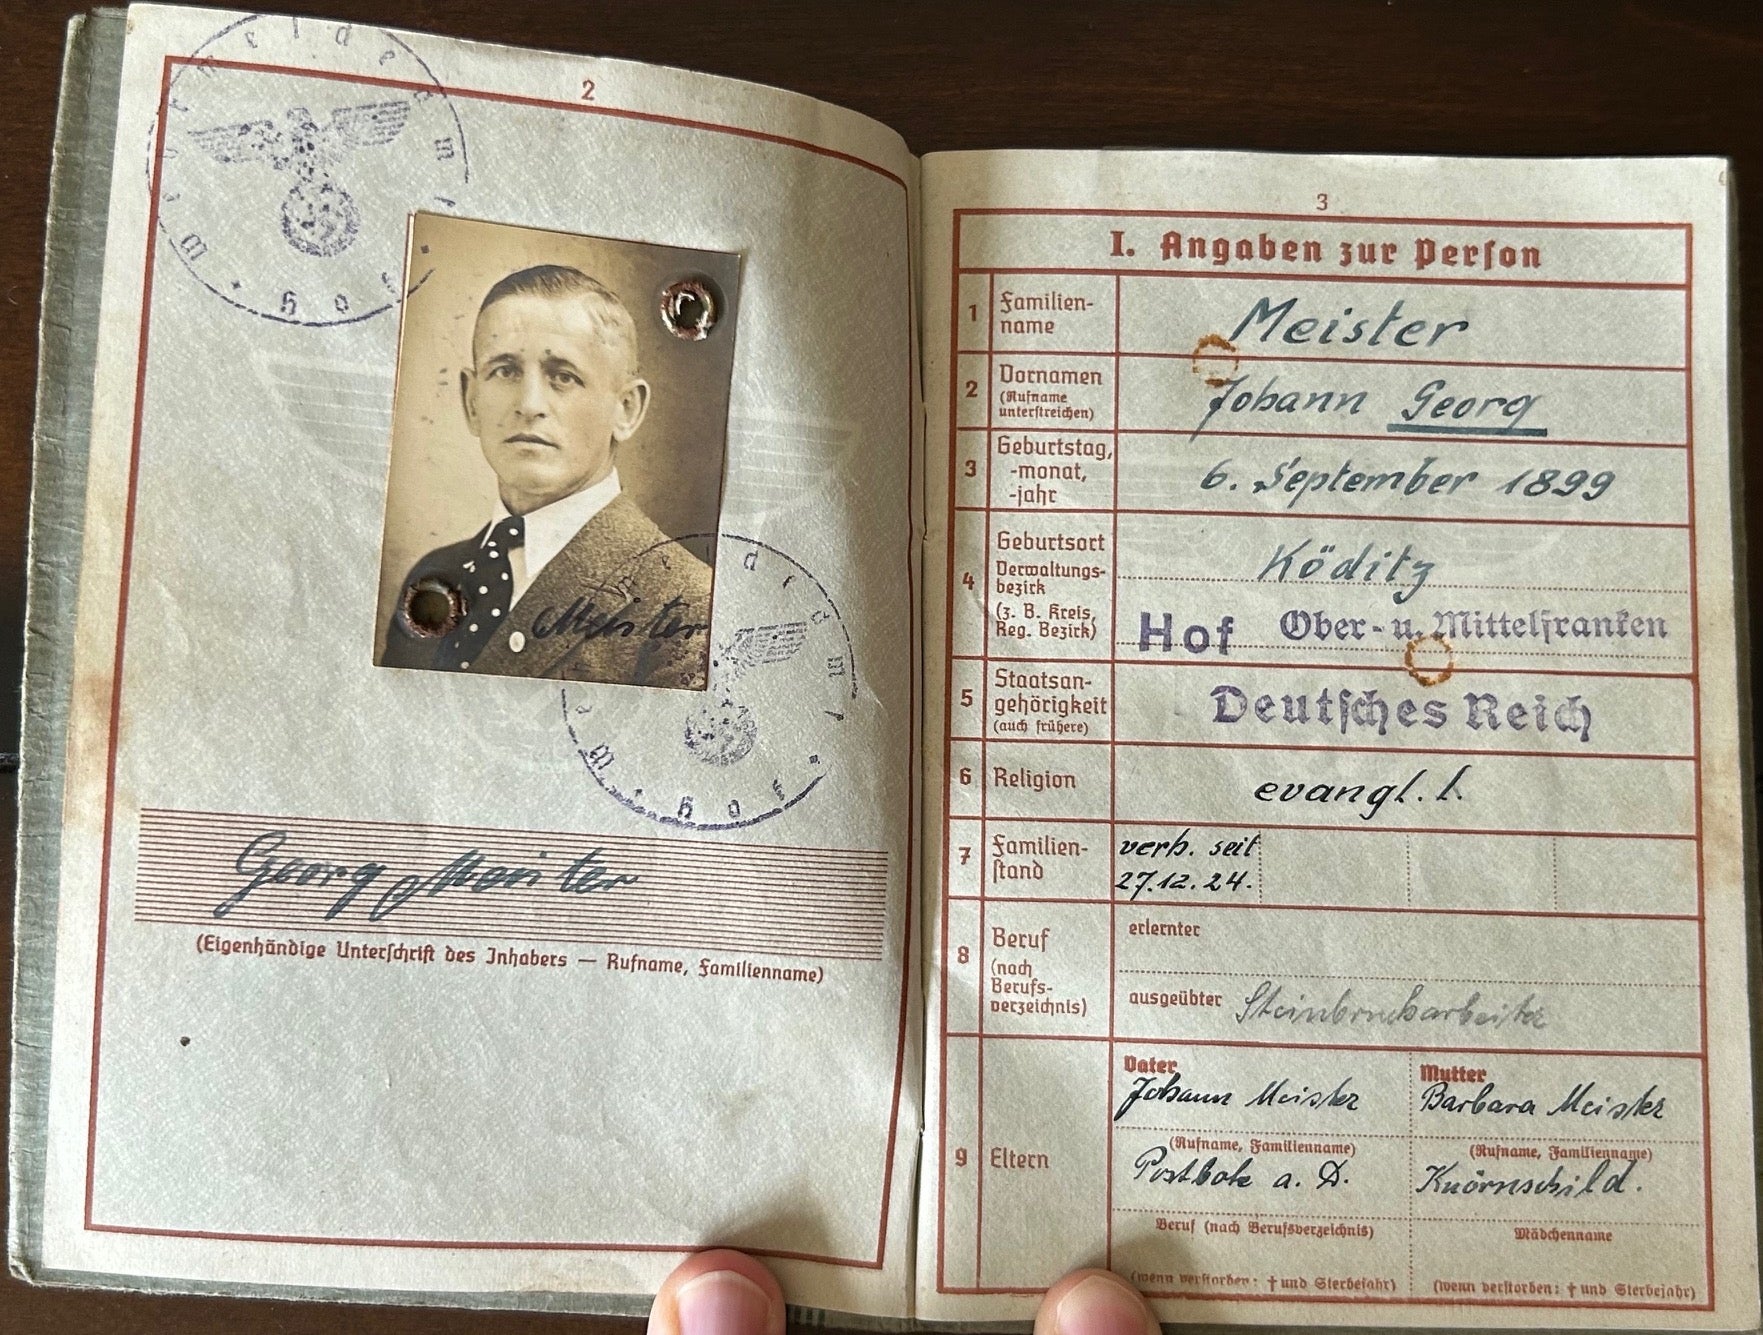 Wehrmeldeamt
Hof
2
Meister
Wehrmeldeamt
Hof
Georg Meister
(Eigenhändige Unterschrift des Inhabers — Rufname, Familienname)
3
I. Angaben zur Person
1 Familien-
name
Meister
2 Vornamen
(Rufname
unterstreichen)
Johann Georg
3 Geburtstag,
-monat,
-jahr
6. September 1899
4 Geburtsort
Verwaltungs-
bezirk
(z. B. Kreis,
Reg. Bezirk)
Köditz
Hof Ober- u. Mittelfranken
5 Staatsan-
gehörigkeit
(auch frühere)
Deutsches Reich
6 Religion
evangl. l.
7 Familien-
stand
verh. seit
27.12.24.
8 Beruf
(nach
Berufs-
verzeichnis)
erlernter
ausgeübter Steinbrucharbeiter
9 Eltern
Vater
Johann Meister
(Rufname, Familienname)
Postbote a. D.
Beruf (nach Berufsverzeichnis)
(wenn verstorben: † und Sterbejahr)
Mutter
Barbara Meister
(Rufname, Familienname)
Knörnschild.
Mädchenname
(wenn verstorben: † und Sterbejahr)